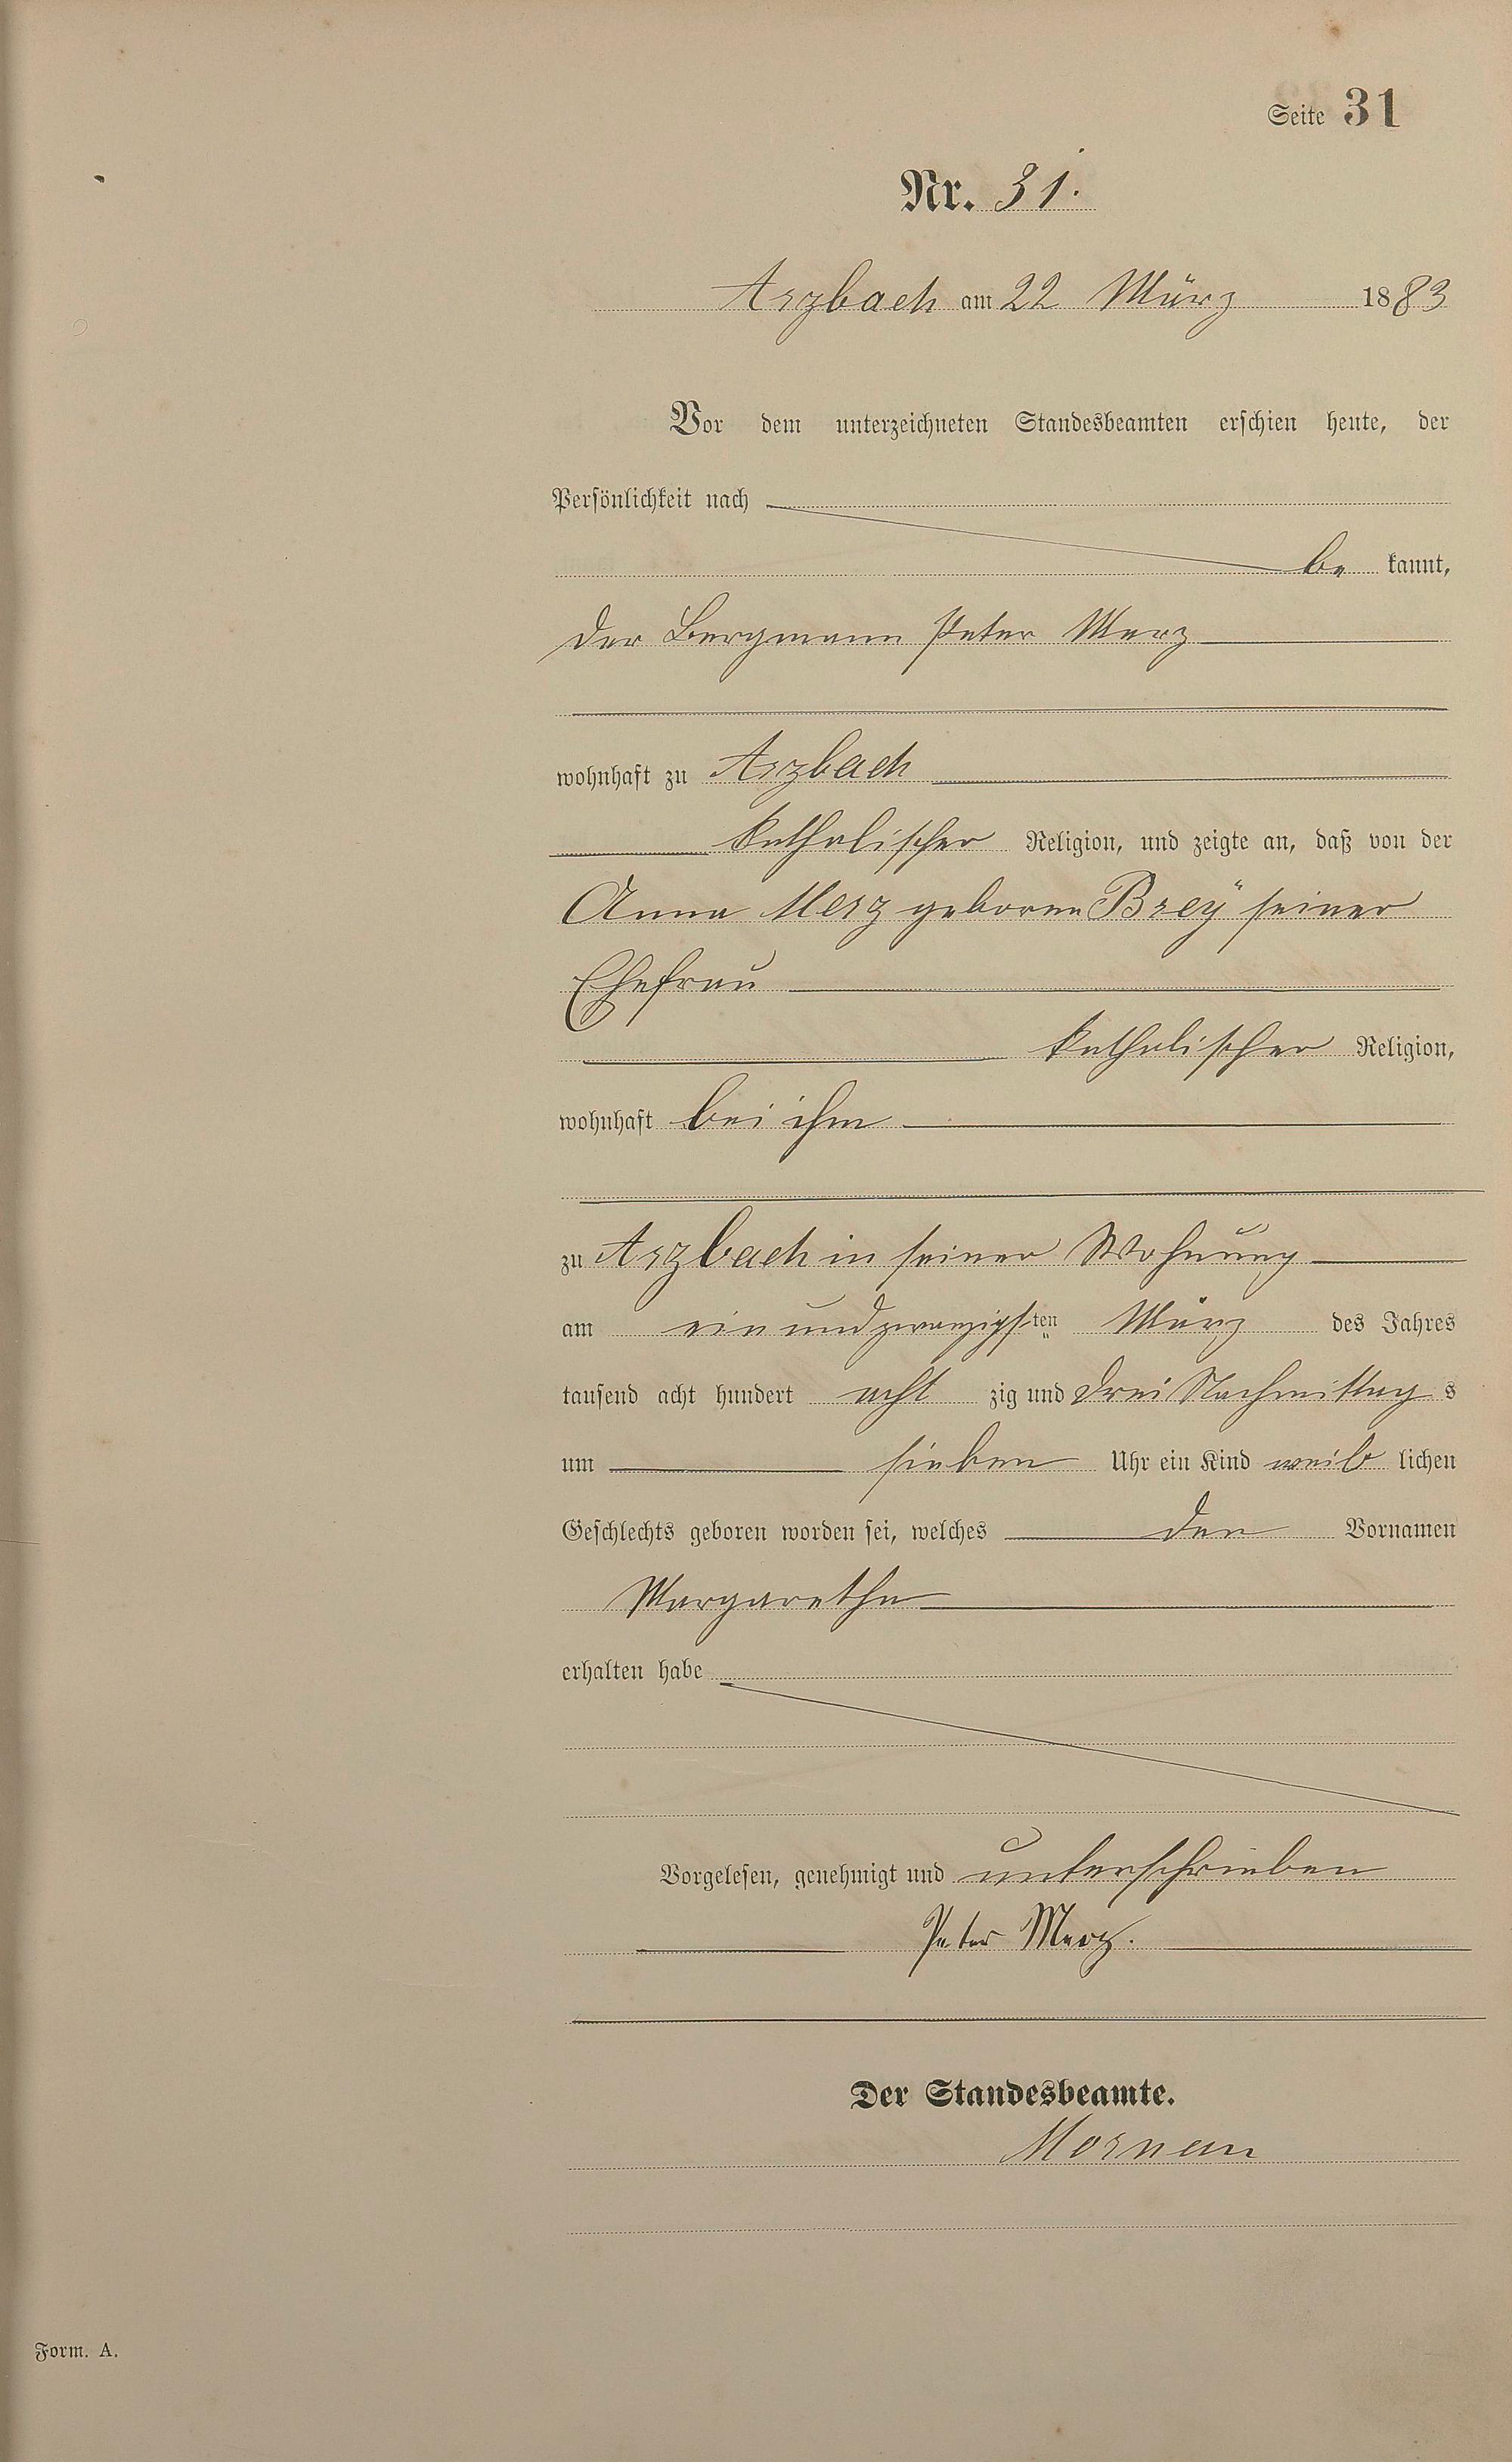 Seite 31
Nr. 31.
Arzbach am 22 März 1883
Vor dem unterzeichneten Standesbeamten erschien heute, der
Persönlichkeit nach
be kannt,
der Bergmann Peter Merz
wohnhaft zu Arzbach
katholischer Religion, und zeigte an, daß von der
Anna Merz geborene Breÿ seiner
Ehefrau
katholischer Religion,
wohnhaft bei ihm
zu Arzbach in seiner Wohnung
am ein und zwanzigsten März des Jahres
tausend acht hundert acht zig und drei Nachmittag s
um sieben Uhr ein Kind weib lichen
Geschlechts geboren worden sei, welches den Vornamen
Margaretha
erhalten habe
Vorgelesen, genehmigt und unterschrieben
Peter Merz.
Der Standesbeamte.
Form. A.